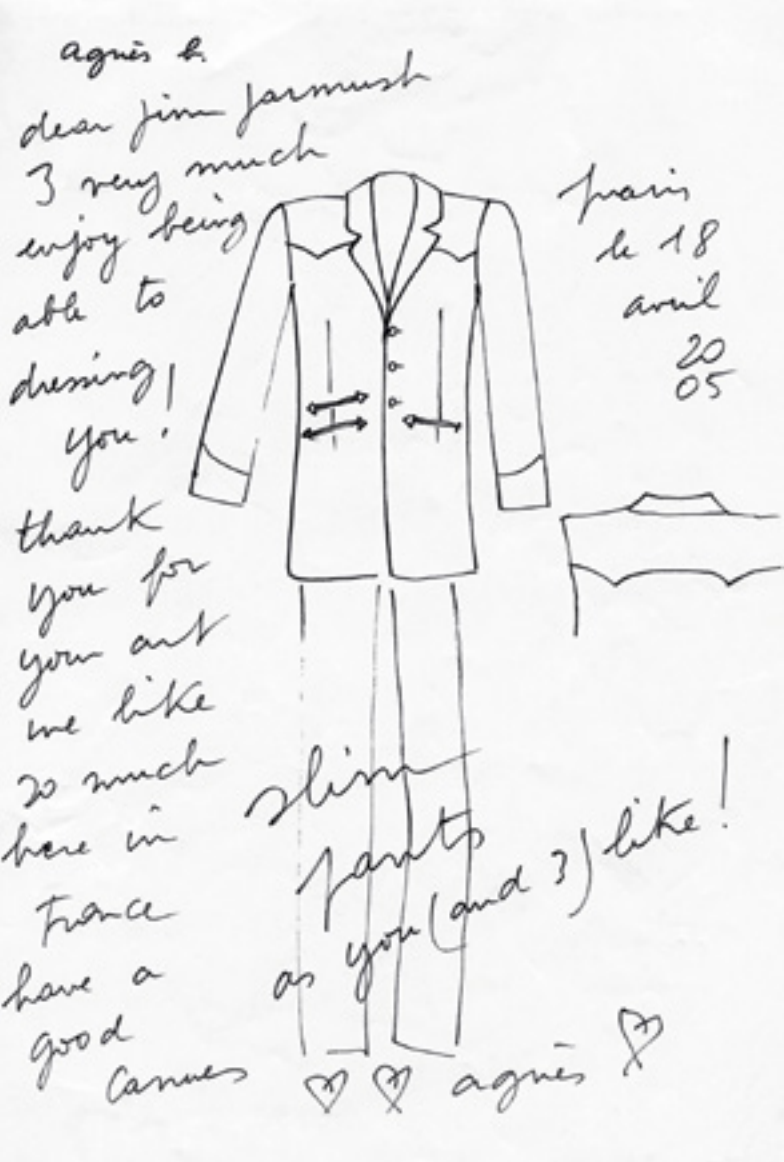 agnès b.
dear jim jarmush
I very much
enjoy being
able to
dressing
you!
thank
you for
your art
we like
so much
here in
France
have a
good
Cannes
paris
le 18
avril
20
05
slim
pants
as you (and I) like!
agnès